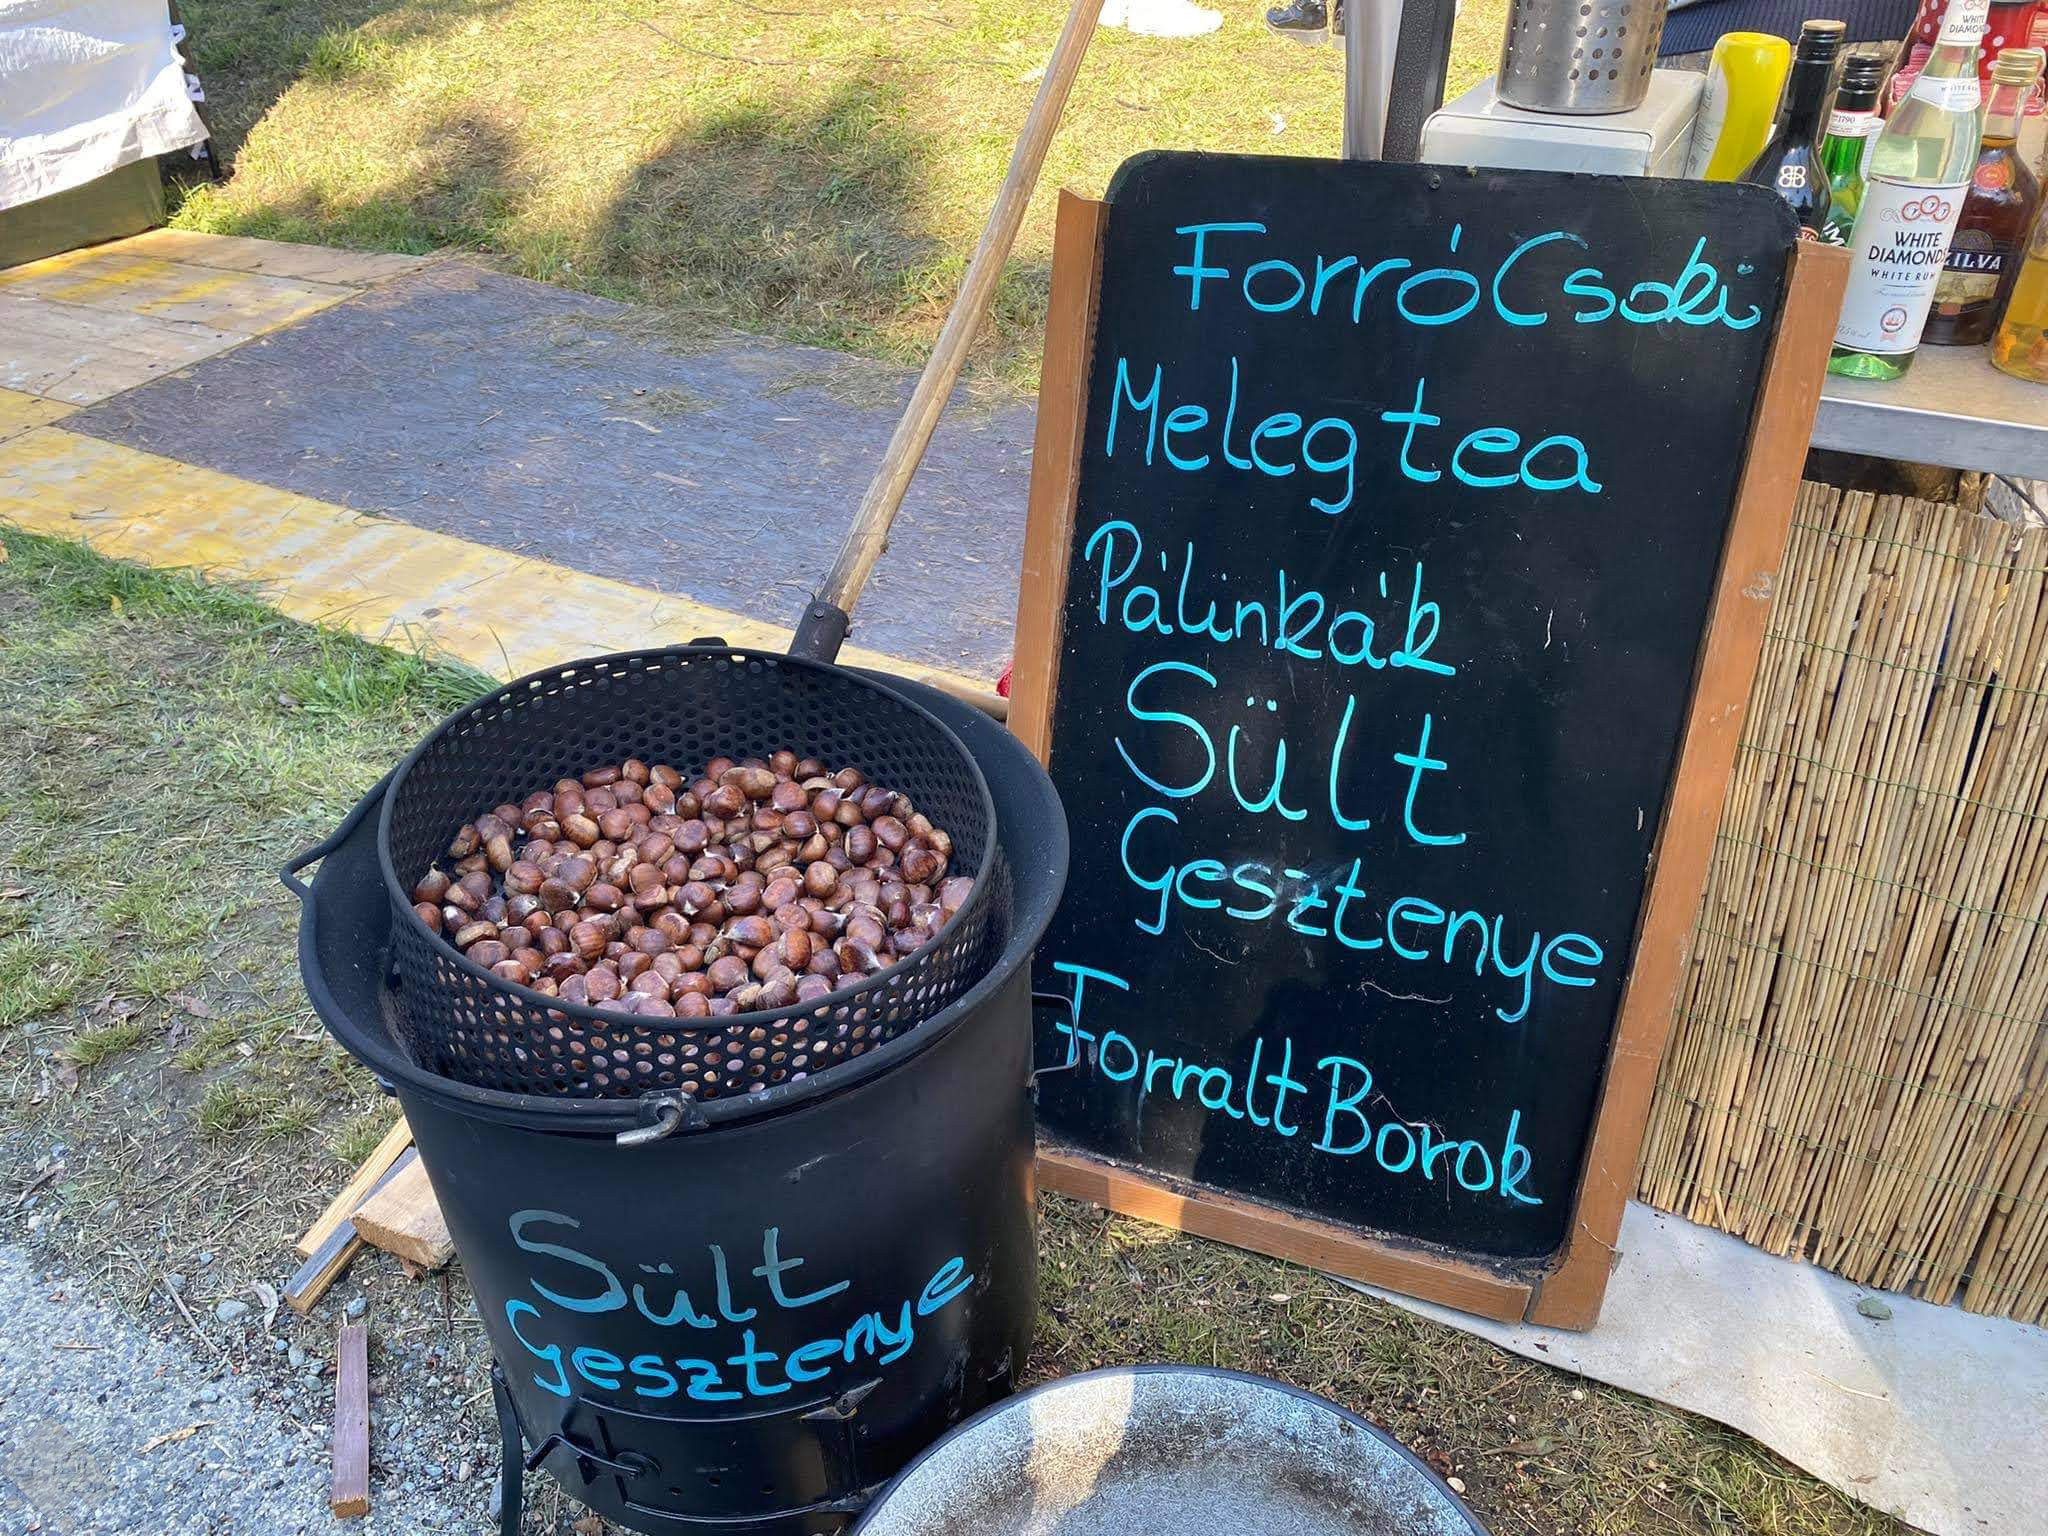 Forró Csoki
Meleg tea
Pálinkák
Sült
Gesztenye
Forralt Borok
Sült
Gesztenye
WHITE
DIAMOND
WHITE
DIAMOND
WHITE RUM
1790
BB
ILVA